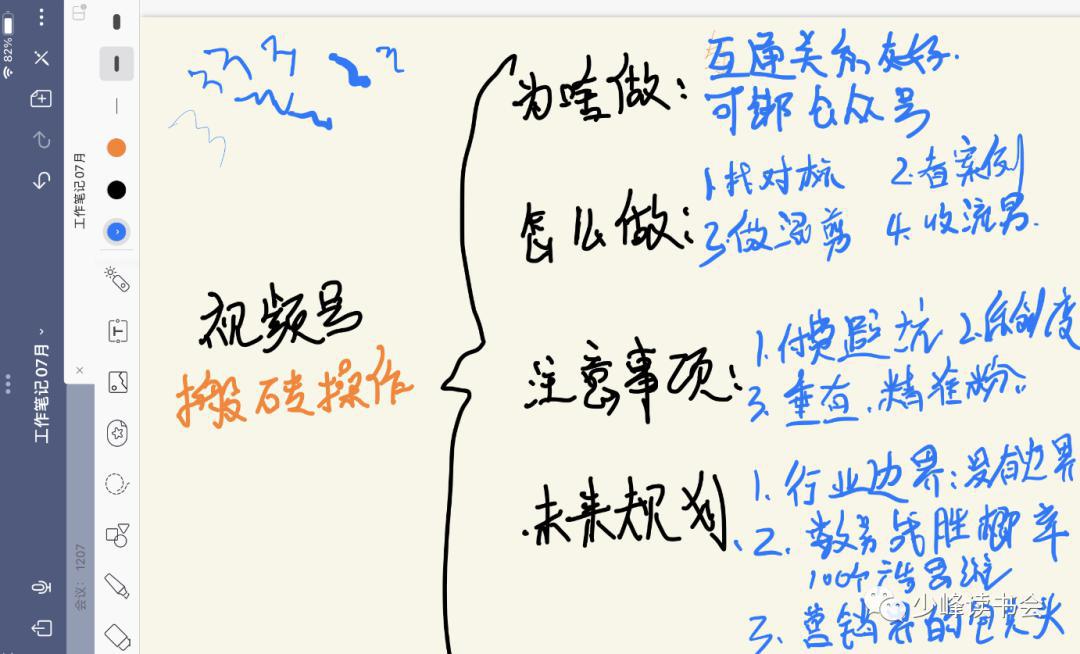 82%
工作笔记 07月
工作笔记 07月
会议：1207
视频号
搬砖操作
为啥做：
互通关系友好.
可绑公众号
怎么做：
1.找对标 2.看案例
3.做混剪 4.收流男.
注意事项：
1.付费避坑 2.原创度
3.垂直.精准粉.
未来规划、
1.行业边界：没有边界
2.数易战胜概率
100个
3.营销
少峰读书会